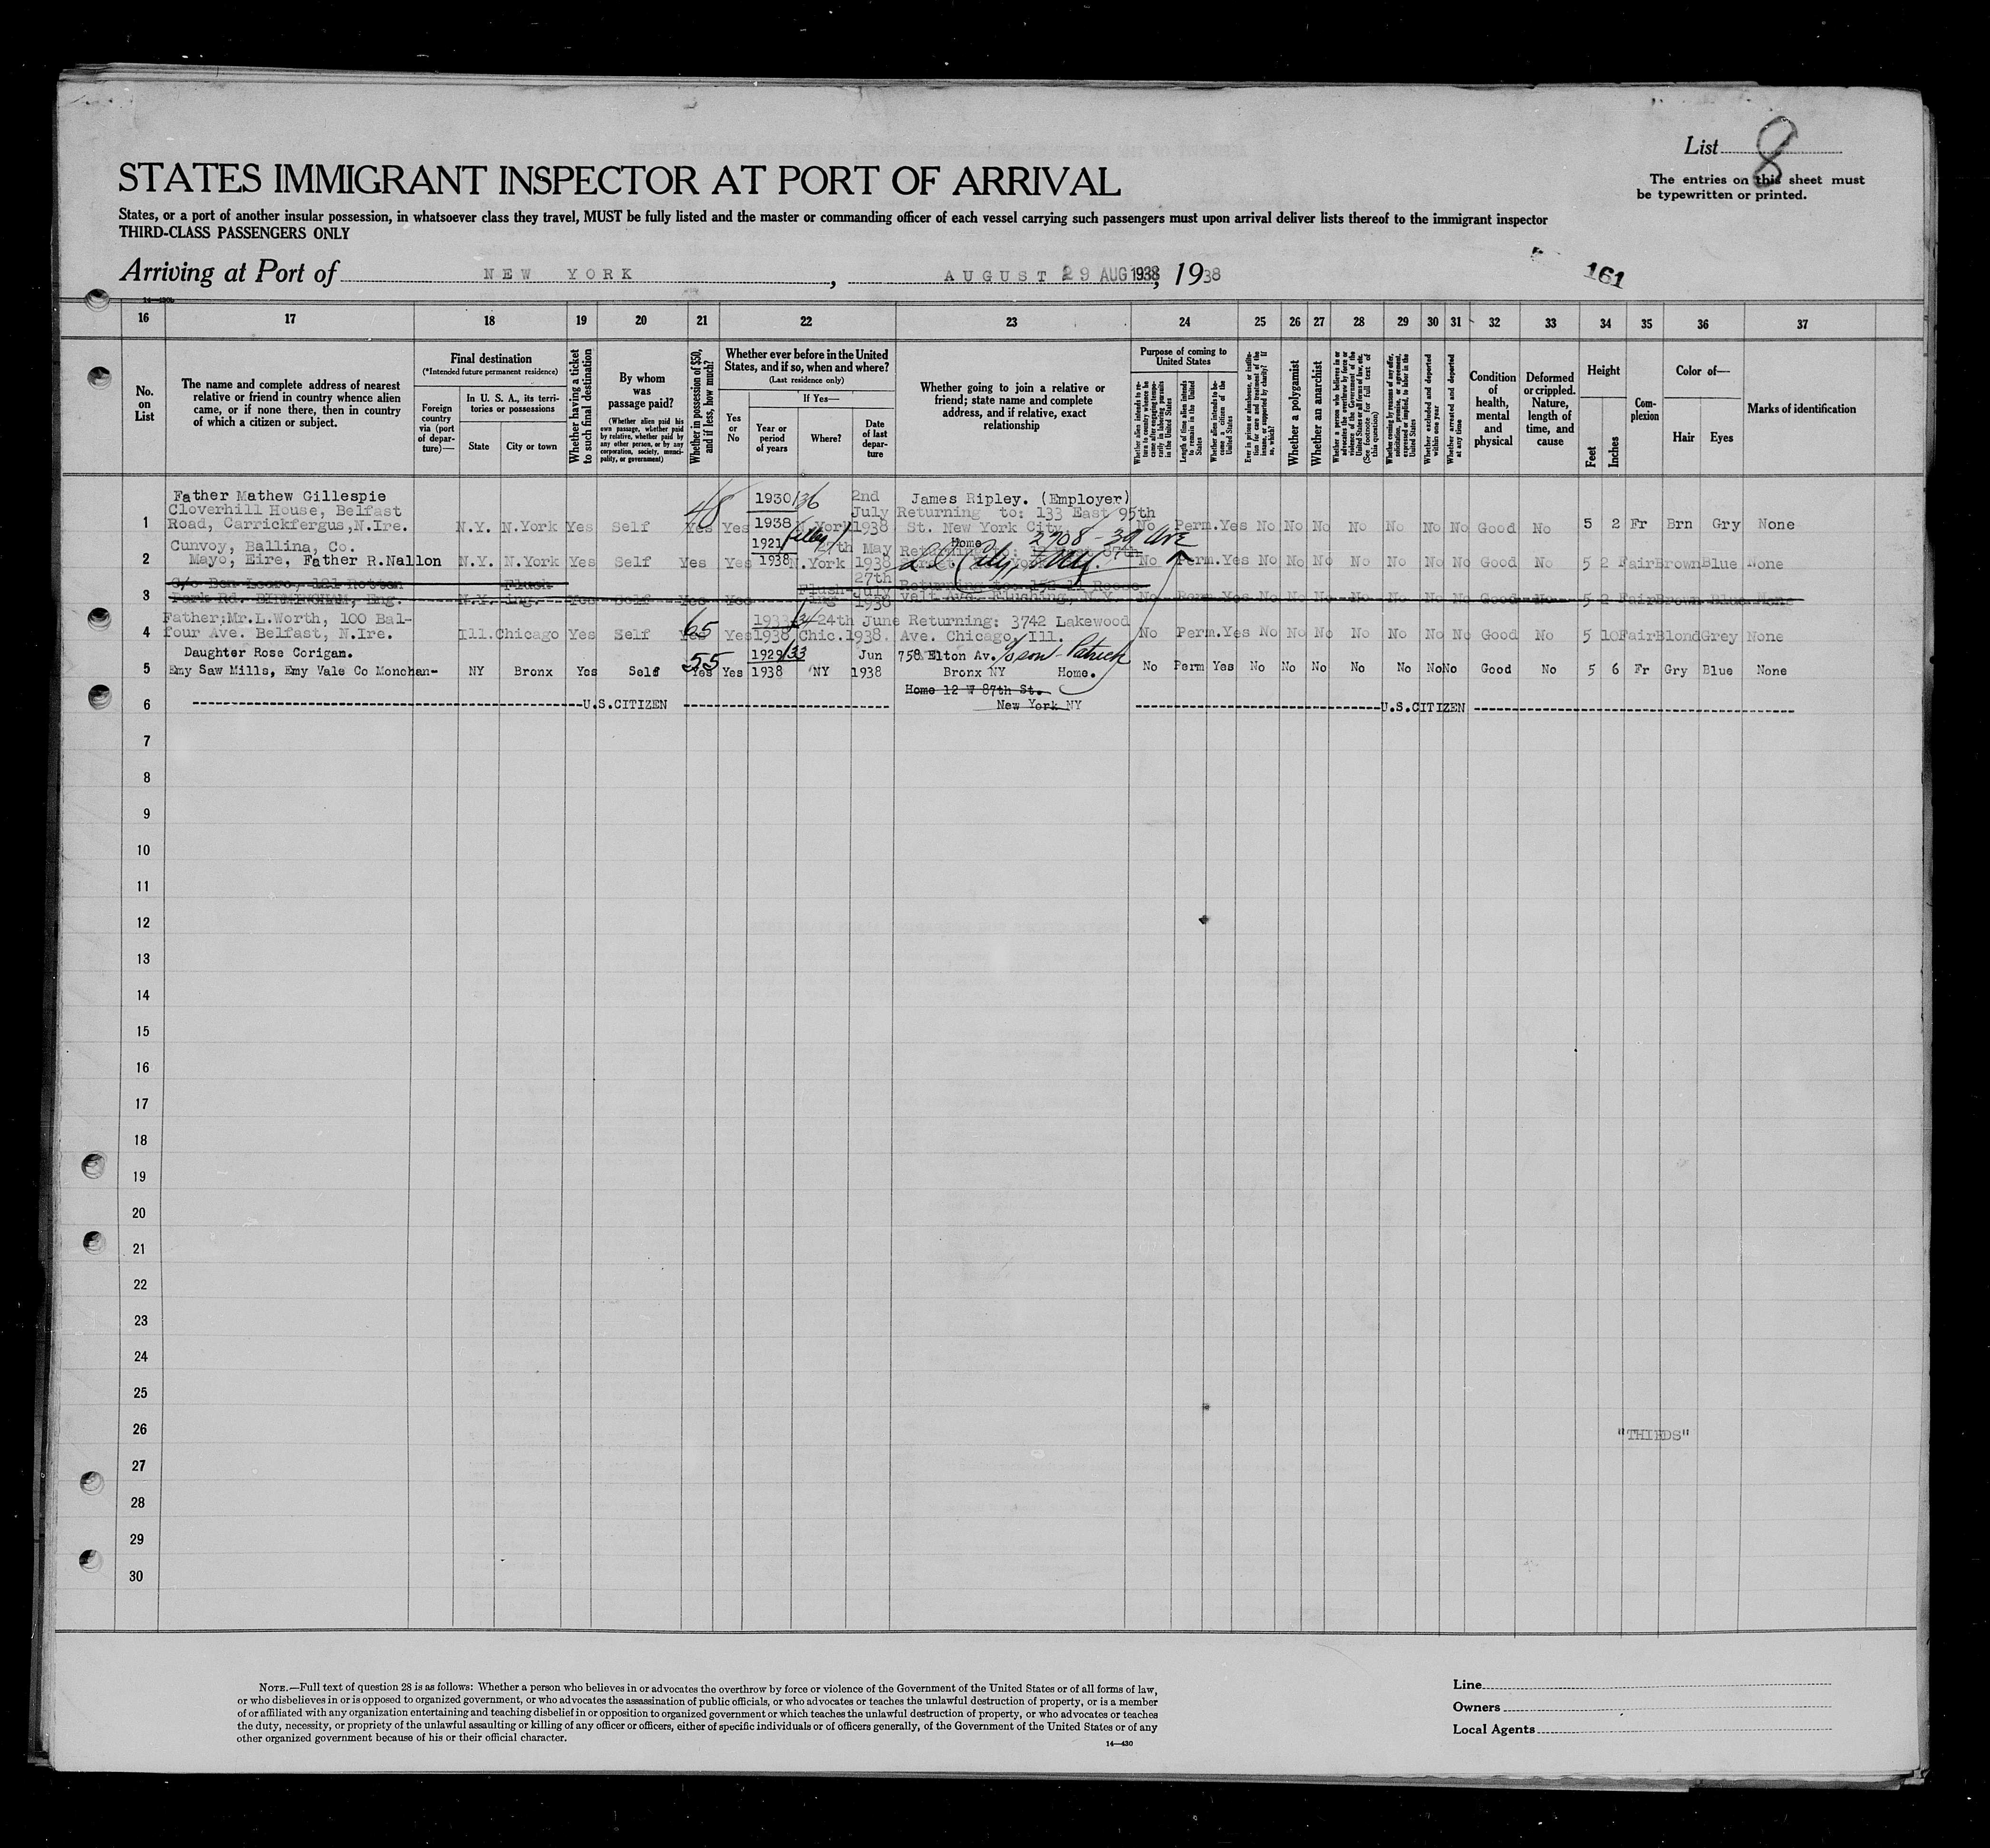 List 8
The entries on this sheet must
be typewritten or printed.
STATES IMMIGRANT INSPECTOR AT PORT OF ARRIVAL
States, or a port of another insular possession, in whatsoever class they travel, MUST be fully listed and the master or commanding officer of each vessel carrying such passengers must upon arrival deliver lists thereof to the immigrant inspector
THIRD-CLASS PASSENGERS ONLY
Arriving at Port of NEW YORK, AUGUST 29 AUG 1938, 1938
161
16 17 18 19 20 21 22 23 24 25 26 27 28 29 30 31 32 33 34 35 36 37
No.
on
List
The name and complete address of nearest
relative or friend in country whence alien
came, or if none there, then in country
of which a citizen or subject.
Final destination
(*Intended future permanent residence)
Foreign
country
via (port
of depar-
ture)—
In U. S. A., its terri-
tories or possessions
State
City or town
Whether having a ticket
to such final destination
By whom
was
passage paid?
(Whether alien paid his
own passage, whether paid
by relative, whether paid by
any other person, or by any
corporation, society, munici-
pality, or government)
Whether in possession of $50,
and if less, how much?
Whether ever before in the United
States, and if so, when and where?
(Last residence only)
Yes
or
No
If Yes—
Year or
period
of years
Where?
Date
of last
depar-
ture
Whether going to join a relative or
friend; state name and complete
address, and if relative, exact
relationship
Purpose of coming to
United States
Length of time alien intends
to remain in the United
States
Whether alien intends to be-
come a citizen of the
United States
Whether a polygamist
Whether an anarchist
(See footnote for full text of
this question)
Whether excluded and deported
within one year
Whether arrested and deported
at any time
Condition
of
health,
mental
and
physical
Deformed
or crippled.
Nature,
length of
time, and
cause
Height
Feet
Inches
Com-
plexion
Color of—
Hair
Eyes
Marks of identification
Father Mathew Gillespie
Cloverhill House, Belfast
1 Road, Carrickfergus,N.Ire. N.Y. N.York Yes Self 48 Yes Yes 1930/36 1938 N York 2nd July 1938 James Ripley. (Employer)
Returning to: 133 East 95th
St. New York City. No Perm. Yes No No No No No No No Good No 5 2 Fr Brn Gry None
Cunvoy, Ballina, Co.
2 Mayo, Eire, Father R.Nallon N.Y. N.York Yes Self Yes Yes 1921 1938 N.York 27th May 1938 Home 2708-39 Ave
Returning to: 87th
L.I. City, No Perm. Yes No No No No No No No Good No 5 2 Fair Brown Blue None
3 Park Rd. BIRMINGHAM, Eng. N.Y. Flush ing. Yes Self Yes Yes Flush ing 27th July 1938 Returning to:
velt Ave. Flushing, N.Y. No Perm Yes No No No No No No No Good No 5 2 Fair Brown Blue None
Father;Mr.L.Worth, 100 Bal-
4 four Ave. Belfast, N.Ire. Ill. Chicago Yes Self 65 Yes Yes 1938 Chic. 24th June 1938. Returning: 3742 Lakewood
Ave. Chicago, Ill. No Perm. Yes No No No No No No No Good No 5 10 Fair Blond Grey None
Daughter Rose Corigan.
5 Emy Saw Mills, Emy Vale Co Monohan- NY Bronx Yes Self 55 Yes Yes 1929/33 1938 NY Jun 1938 758 Elton Av. Patrick
Bronx NY Home. No Perm Yes No No No No No No No Good No 5 6 Fr Gry Blue None
6 U.S.CITIZEN Home 12 W 87th St.
New York NY U.S.CITIZEN
7
8
9
10
11
12
13
14
15
16
17
18
19
20
21
22
23
24
25
26 "THIRDS"
27
28
29
30
NOTE.—Full text of question 28 is as follows: Whether a person who believes in or advocates the overthrow by force or violence of the Government of the United States or of all forms of law,
or who disbelieves in or is opposed to organized government, or who advocates the assassination of public officials, or who advocates or teaches the unlawful destruction of property, or is a member
of or affiliated with any organization entertaining and teaching disbelief in or opposition to organized government or which teaches the unlawful destruction of property, or who advocates or teaches
the duty, necessity, or propriety of the unlawful assaulting or killing of any officer or officers, either of specific individuals or of officers generally, of the Government of the United States or of any
other organized government because of his or their official character.
14—430
Line
Owners
Local Agents